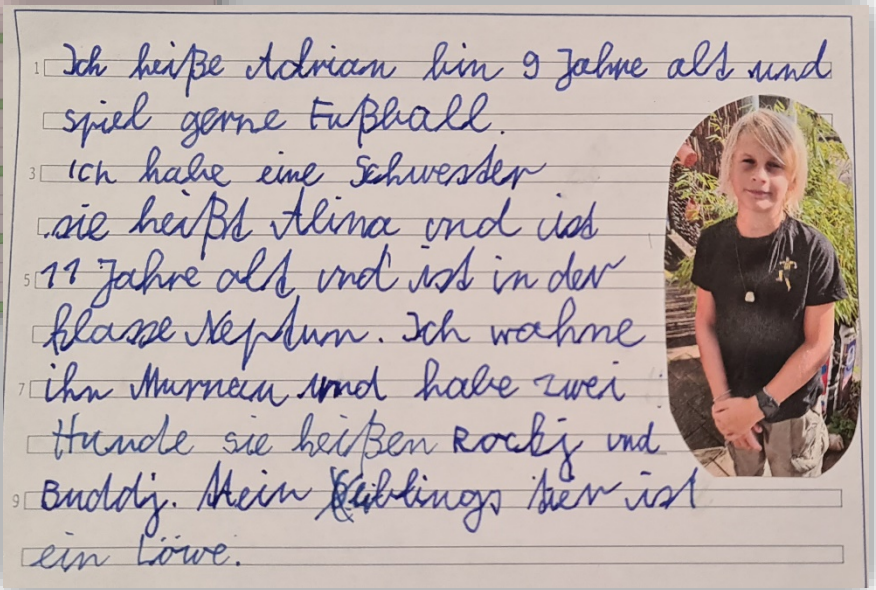 1 Ich heiße Adrian bin 9 Jahre alt und
spiel gerne Fußball.
3 Ich habe eine Schwester
sie heißt Alina und ist
5 11 Jahre alt und ist in der
klasse Neptun. Ich wohne
7 ihn Murnau und habe zwei
Hunde sie heißen Rocky und
9 Buddy. Mein lieblings tier ist
ein Löwe.